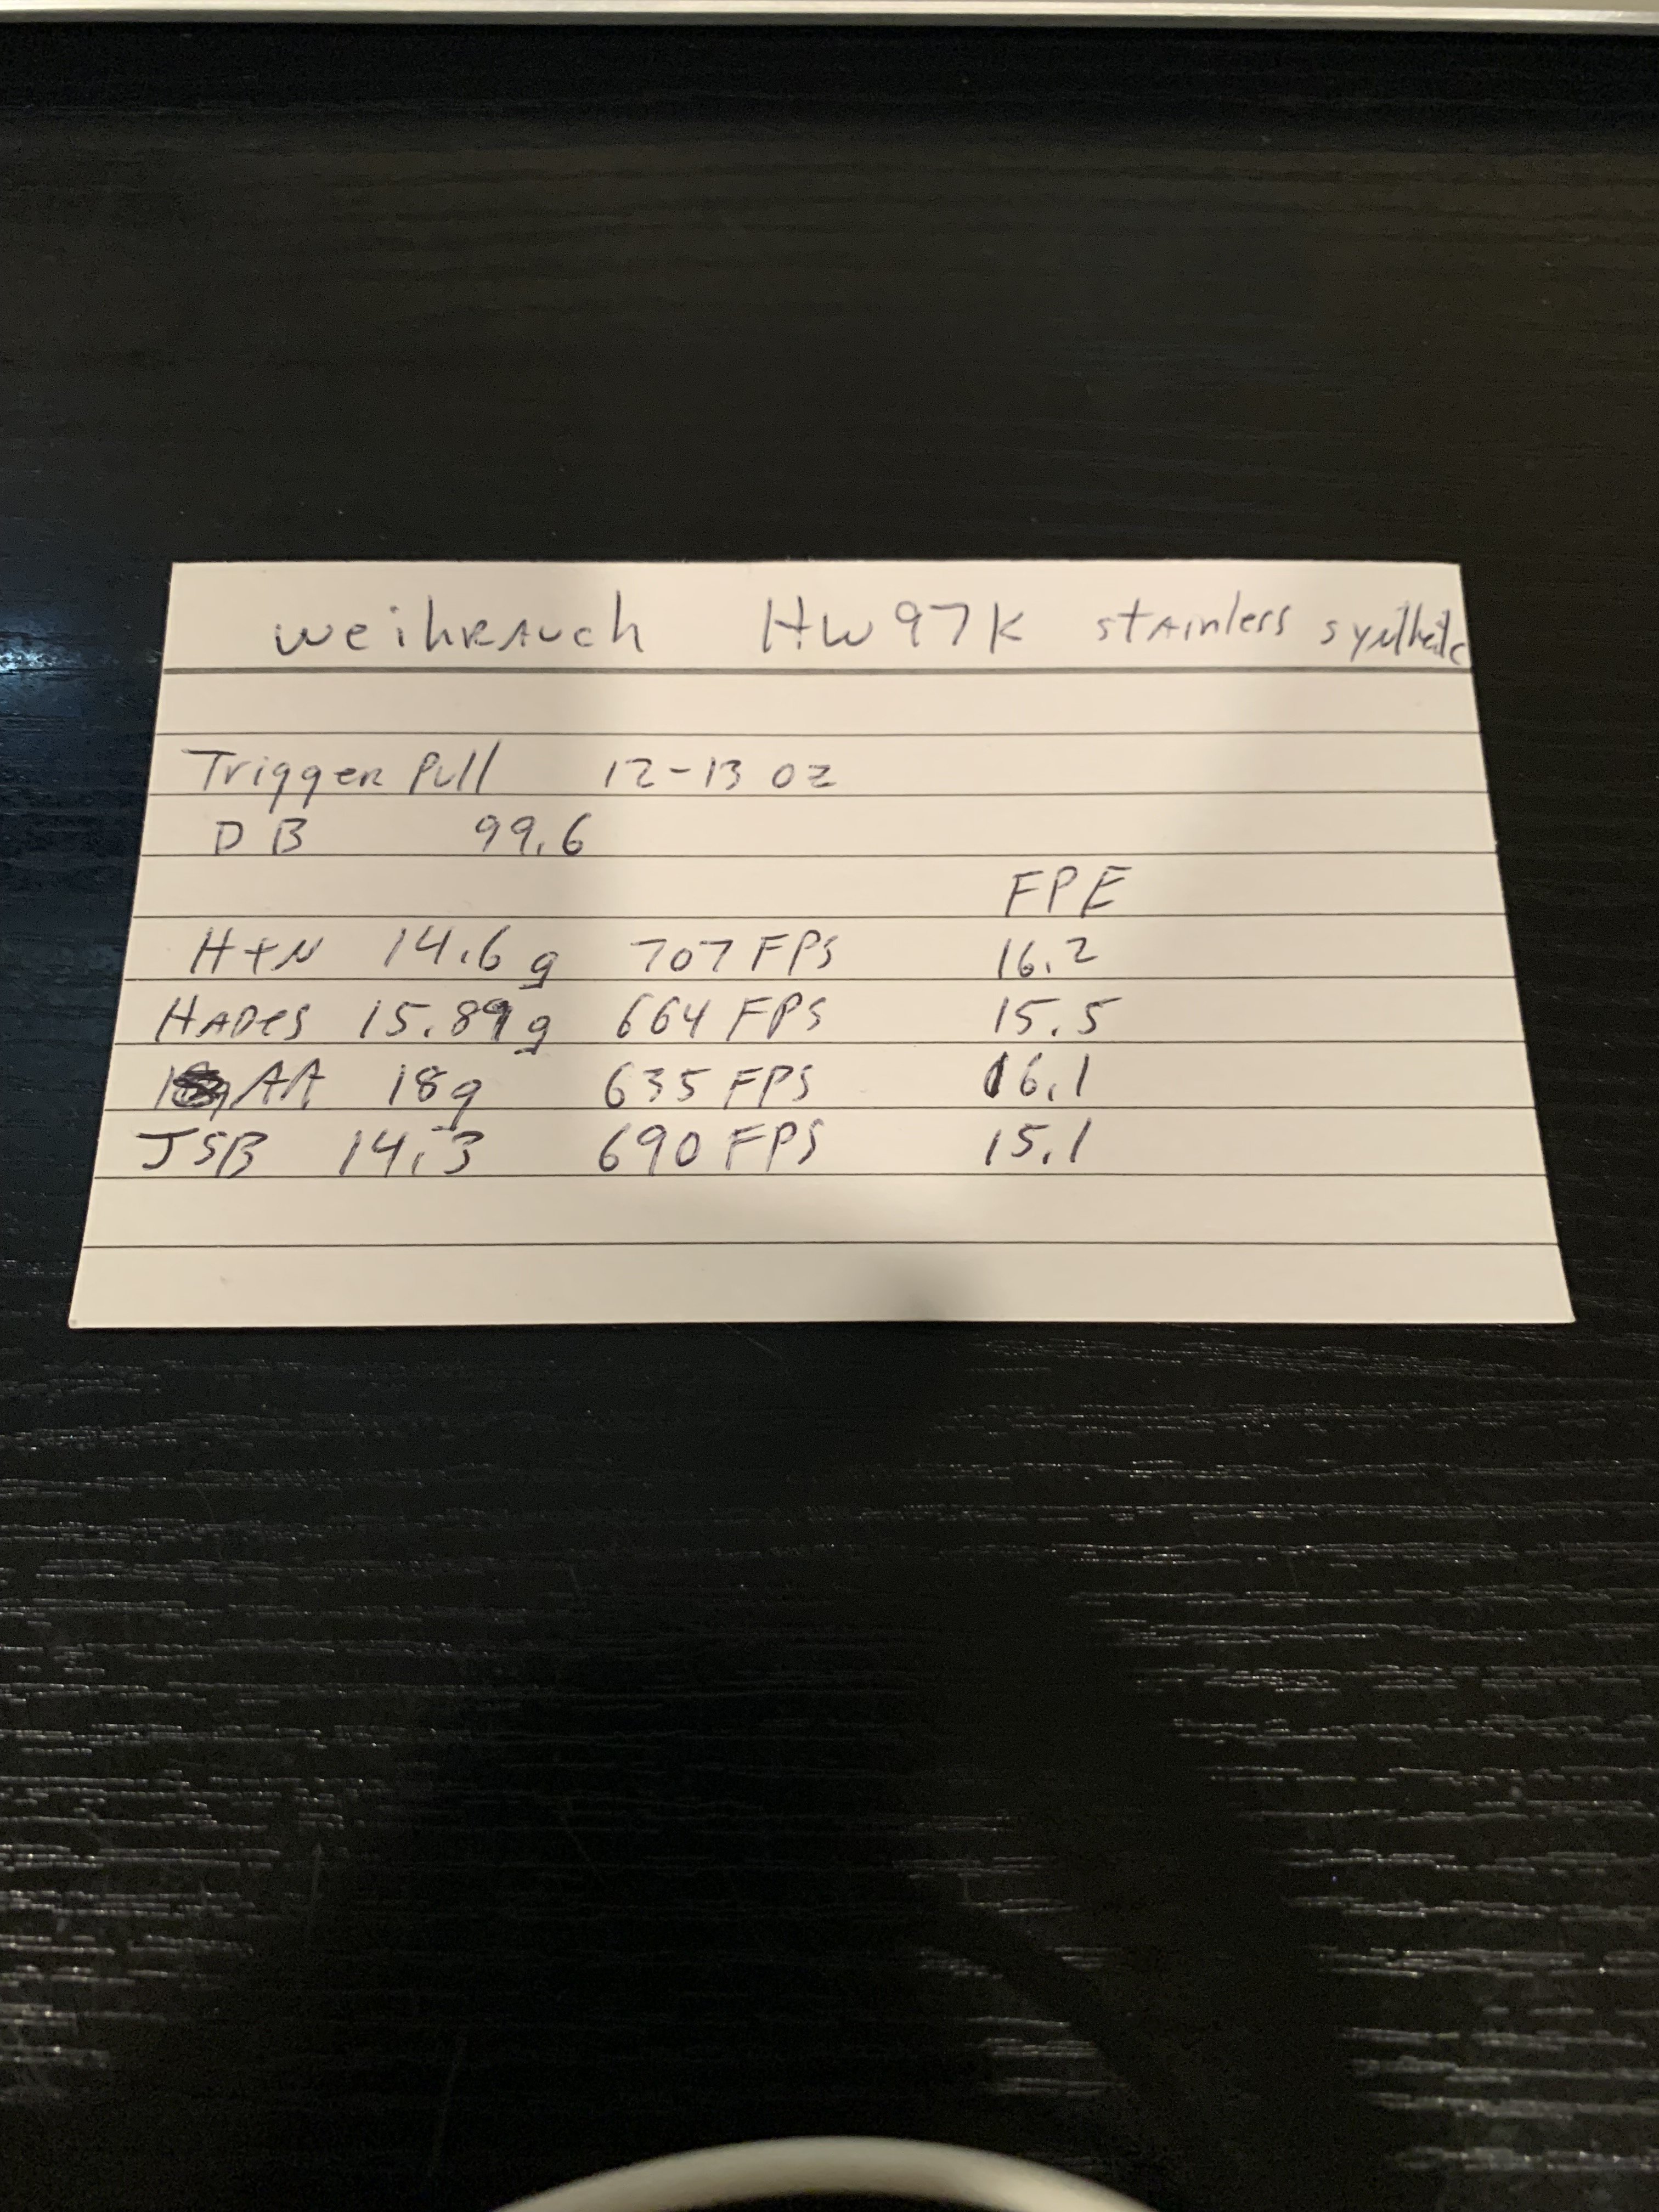 weihRAUch HW97K stainless synthetic
Trigger Pull 12-13 oz
DB 99.6
FPE
H+N 14.6g 707 FPS 16.2
HADES 15.89g 664 FPS 15.5
AA 18g 635 FPS 16.1
JSB 14.3 690 FPS 15.1